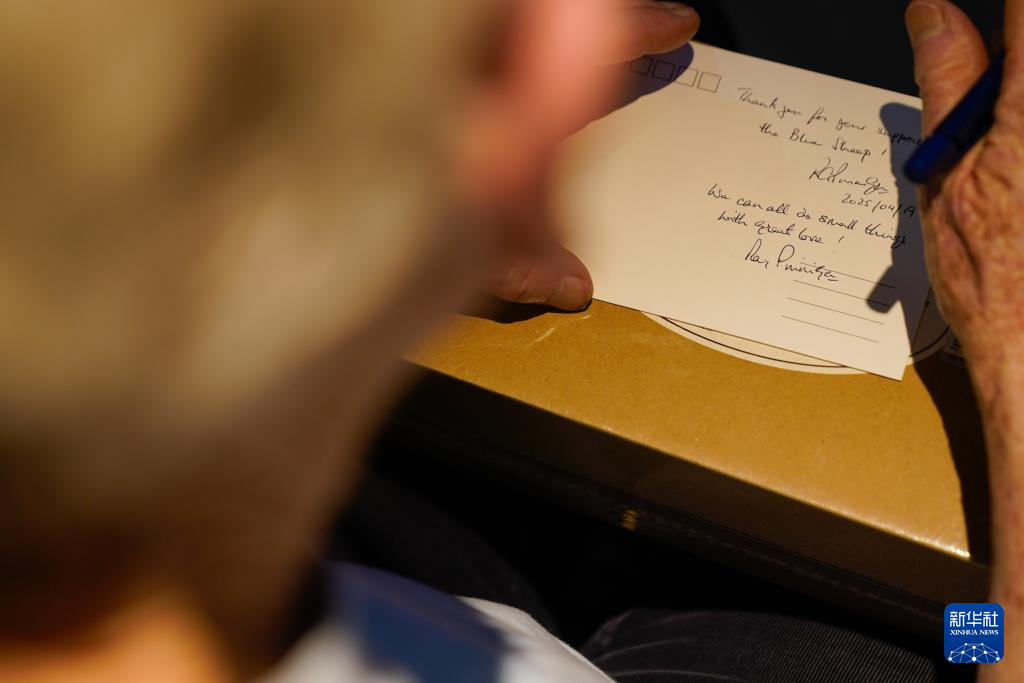 Thank you for your support
the Blue Sheep !
2025/04/19
We can all do small things
with great love !
Ray
新华社
XINHUA NEWS